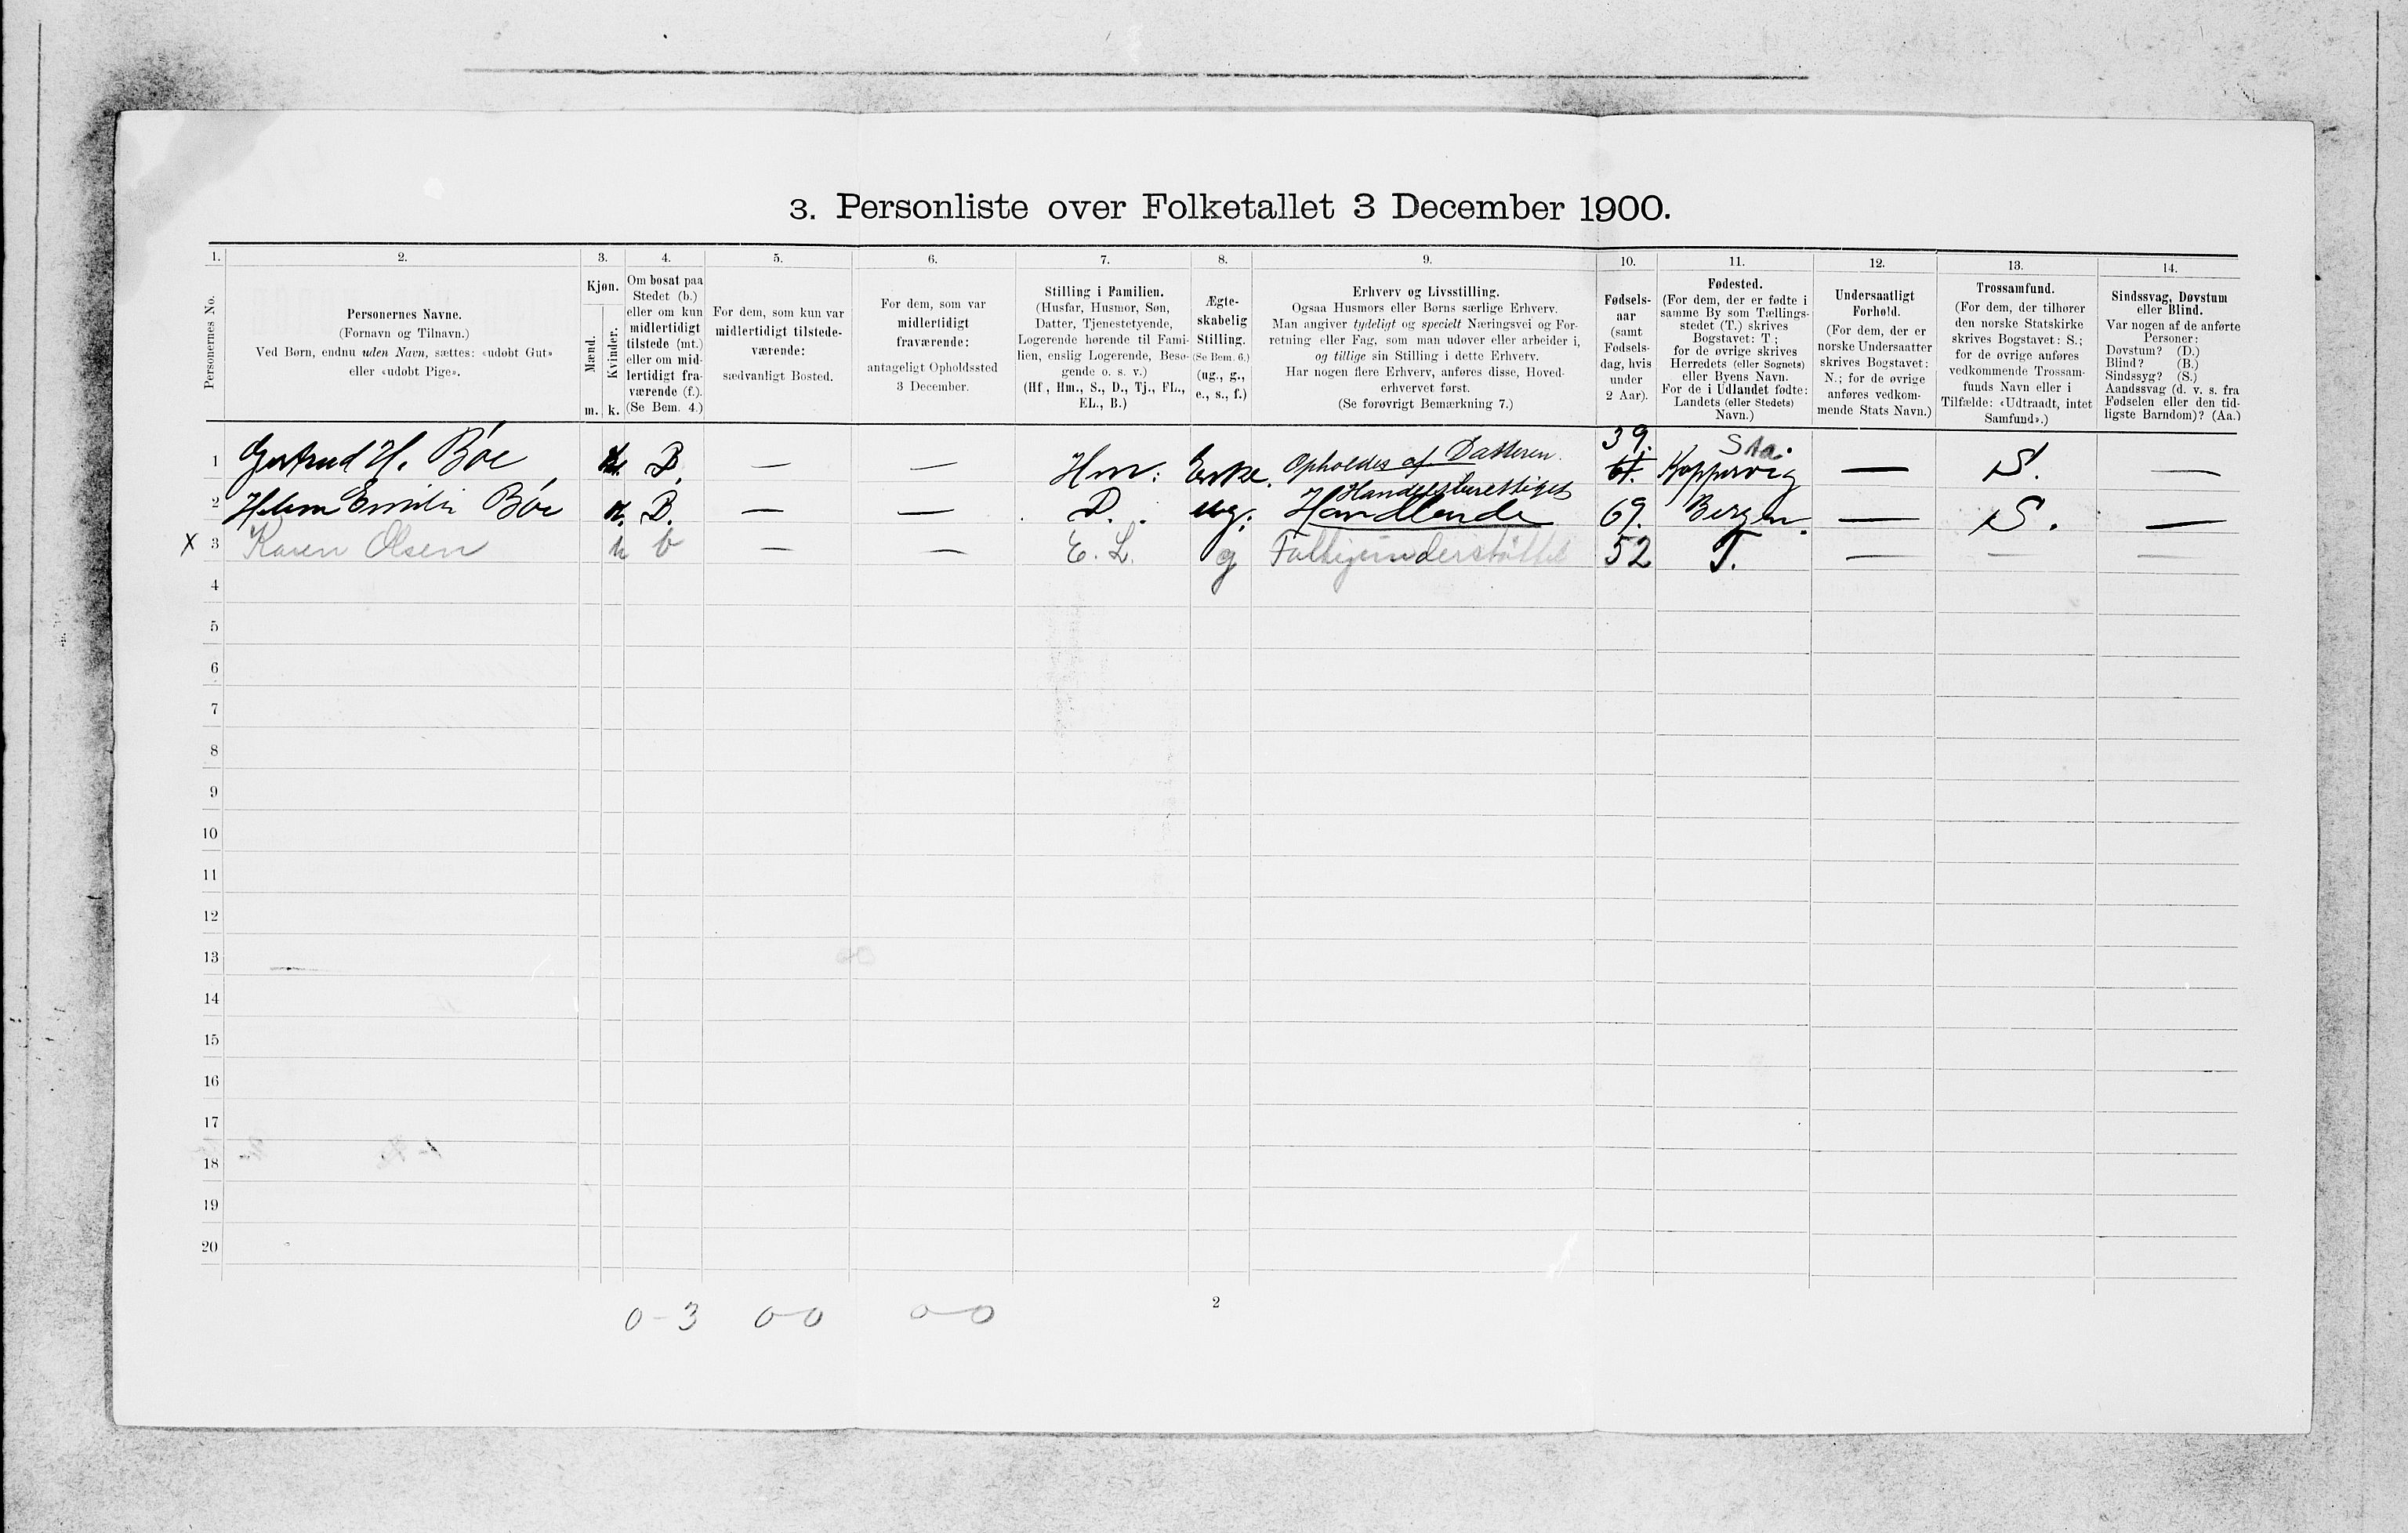 3. Personliste over Folketallet 3 December 1900.
1. 2. 3. 4. 5. 6. 7. 8. 9. 10. 11. 12. 13. 14.
Personernes No.
Personernes Navne.
(Fornavn og Tilnavn.)
Ved Børn, endnu uden Navn, sættes: «udøbt Gut»
eller «udøbt Pige».
Kjøn.
Mænd.
Kvinder.
m. k.
Om bosat paa
Stedet (b.)
eller om kun
midlertidigt
tilstede (mt.)
eller om mid-
lertidigt fra-
værende (f.).
(Se Bem. 4.)
For dem, som kun var
midlertidigt tilstede-
værende:
sædvanligt Bosted.
For dem, som var
midlertidigt
fraværende:
antageligt Opholdssted
3 December.
Stilling i Familien.
(Husfar, Husmor, Søn,
Datter, Tjenestetyende,
Logerende hørende til Fami-
lien, enslig Logerende, Besø-
gende o. s. v.)
(Hf, Hm., S., D., Tj., FL.,
EL., B.)
Ægte-
skabelig
Stilling.
(Se Bem. 6.)
(ug., g.,
e., s., f.)
Erhverv og Livsstilling.
Ogsaa Husmors eller Børns særlige Erhverv.
Man angiver tydeligt og specielt Næringsvei og For-
retning eller Fag, som man udøver eller arbeider i,
og tillige sin Stilling i dette Erhverv.
Har nogen flere Erhverv, anføres disse, Hoved-
erhvervet først.
(Se forøvrigt Bemærkning 7.)
Fødsels-
aar
(samt
Fødsels-
dag, hvis
under
2 Aar).
Fødested.
(For dem, der er fødte i
samme By som Tællings-
stedet (T.) skrives
Bogstavet: T;
for de øvrige skrives
Herredets (eller Sognets)
eller Byens Navn.
For de i Udlandet fødte:
Landets (eller Stedets)
Navn.)
Undersaatligt
Forhold.
(For dem, der er
norske Undersaatter
skrives Bogstavet:
N.; for de øvrige
anføres vedkom-
mende Stats Navn.)
Trossamfund.
(For dem, der tilhører
den norske Statskirke
skrives Bogstavet: S.;
for de øvrige anføres
vedkommende Trossam-
funds Navn eller i
Tilfælde: «Udtraadt, intet
Samfund».)
Sindssvag, Døvstum
eller Blind.
Var nogen af de anførte
Personer:
Døvstum? (D.)
Blind? (B.)
Sindssyg? (S.)
Aandssvag (d. v. s. fra
Fødselen eller den tid-
ligste Barndom)? (Aa.)
39. Sta
1 Gertrud H. Bøe k. B. — — Hm: Enke. Opholdes af Datteren. 61. Koppervig — S. —
Handelsberettiget
2 Helene Emilie Bøe k. B. — — D. ug. Handlende 69. Bergen. — S. —
x 3 Karen Olsen k b — — E. L. g Fattigunderstøttet 52 T. — — —
4
5
6
7
8
9
10
11
12
13
14
15
16
17
18
19
20
0-3 0-0 0-0 2